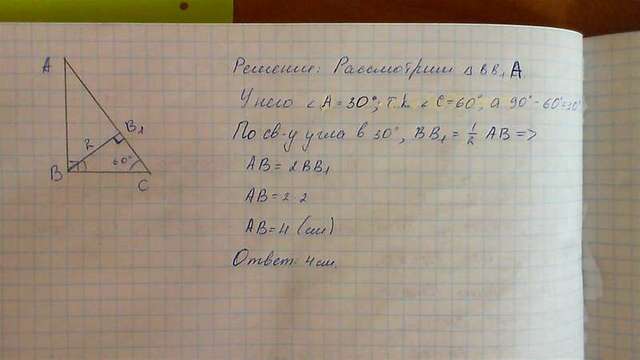 A
B₁
2
60°
B
C
Решение: Рассмотрим △BB₁A
У него ∠A=30°, т.к. ∠C=60°, а 90°-60°=30°
По св-у угла в 30°, BB₁ = 1/2 AB =>
AB=2BB₁
AB=2·2
AB=4 (см)
Ответ: 4см.